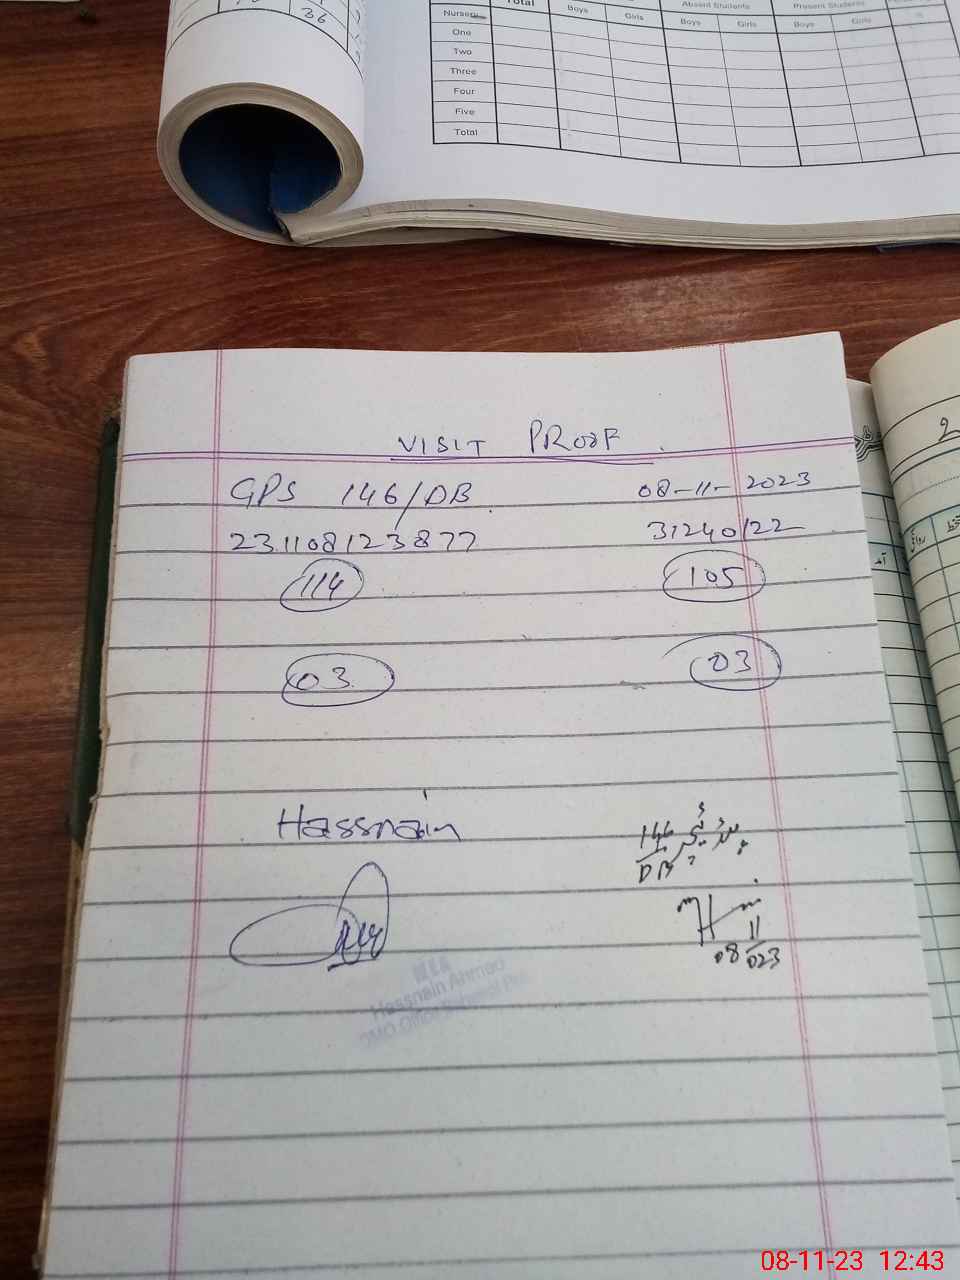 36
Total
Absent Students
Present Students
Nursery
Boys
Girls
Boys
Girls
Boys
Girls
One
Two
Three
Four
Five
Total
VISIT PROOF
GPS 146/DB
08-11-2023
231108123877
31240122
114
105
03
03
Hassnain
146
DB
08 11
023
MEA
Hassnain Ahmad
DMO Office
2
روانگی
آمد
08-11-23 12:43